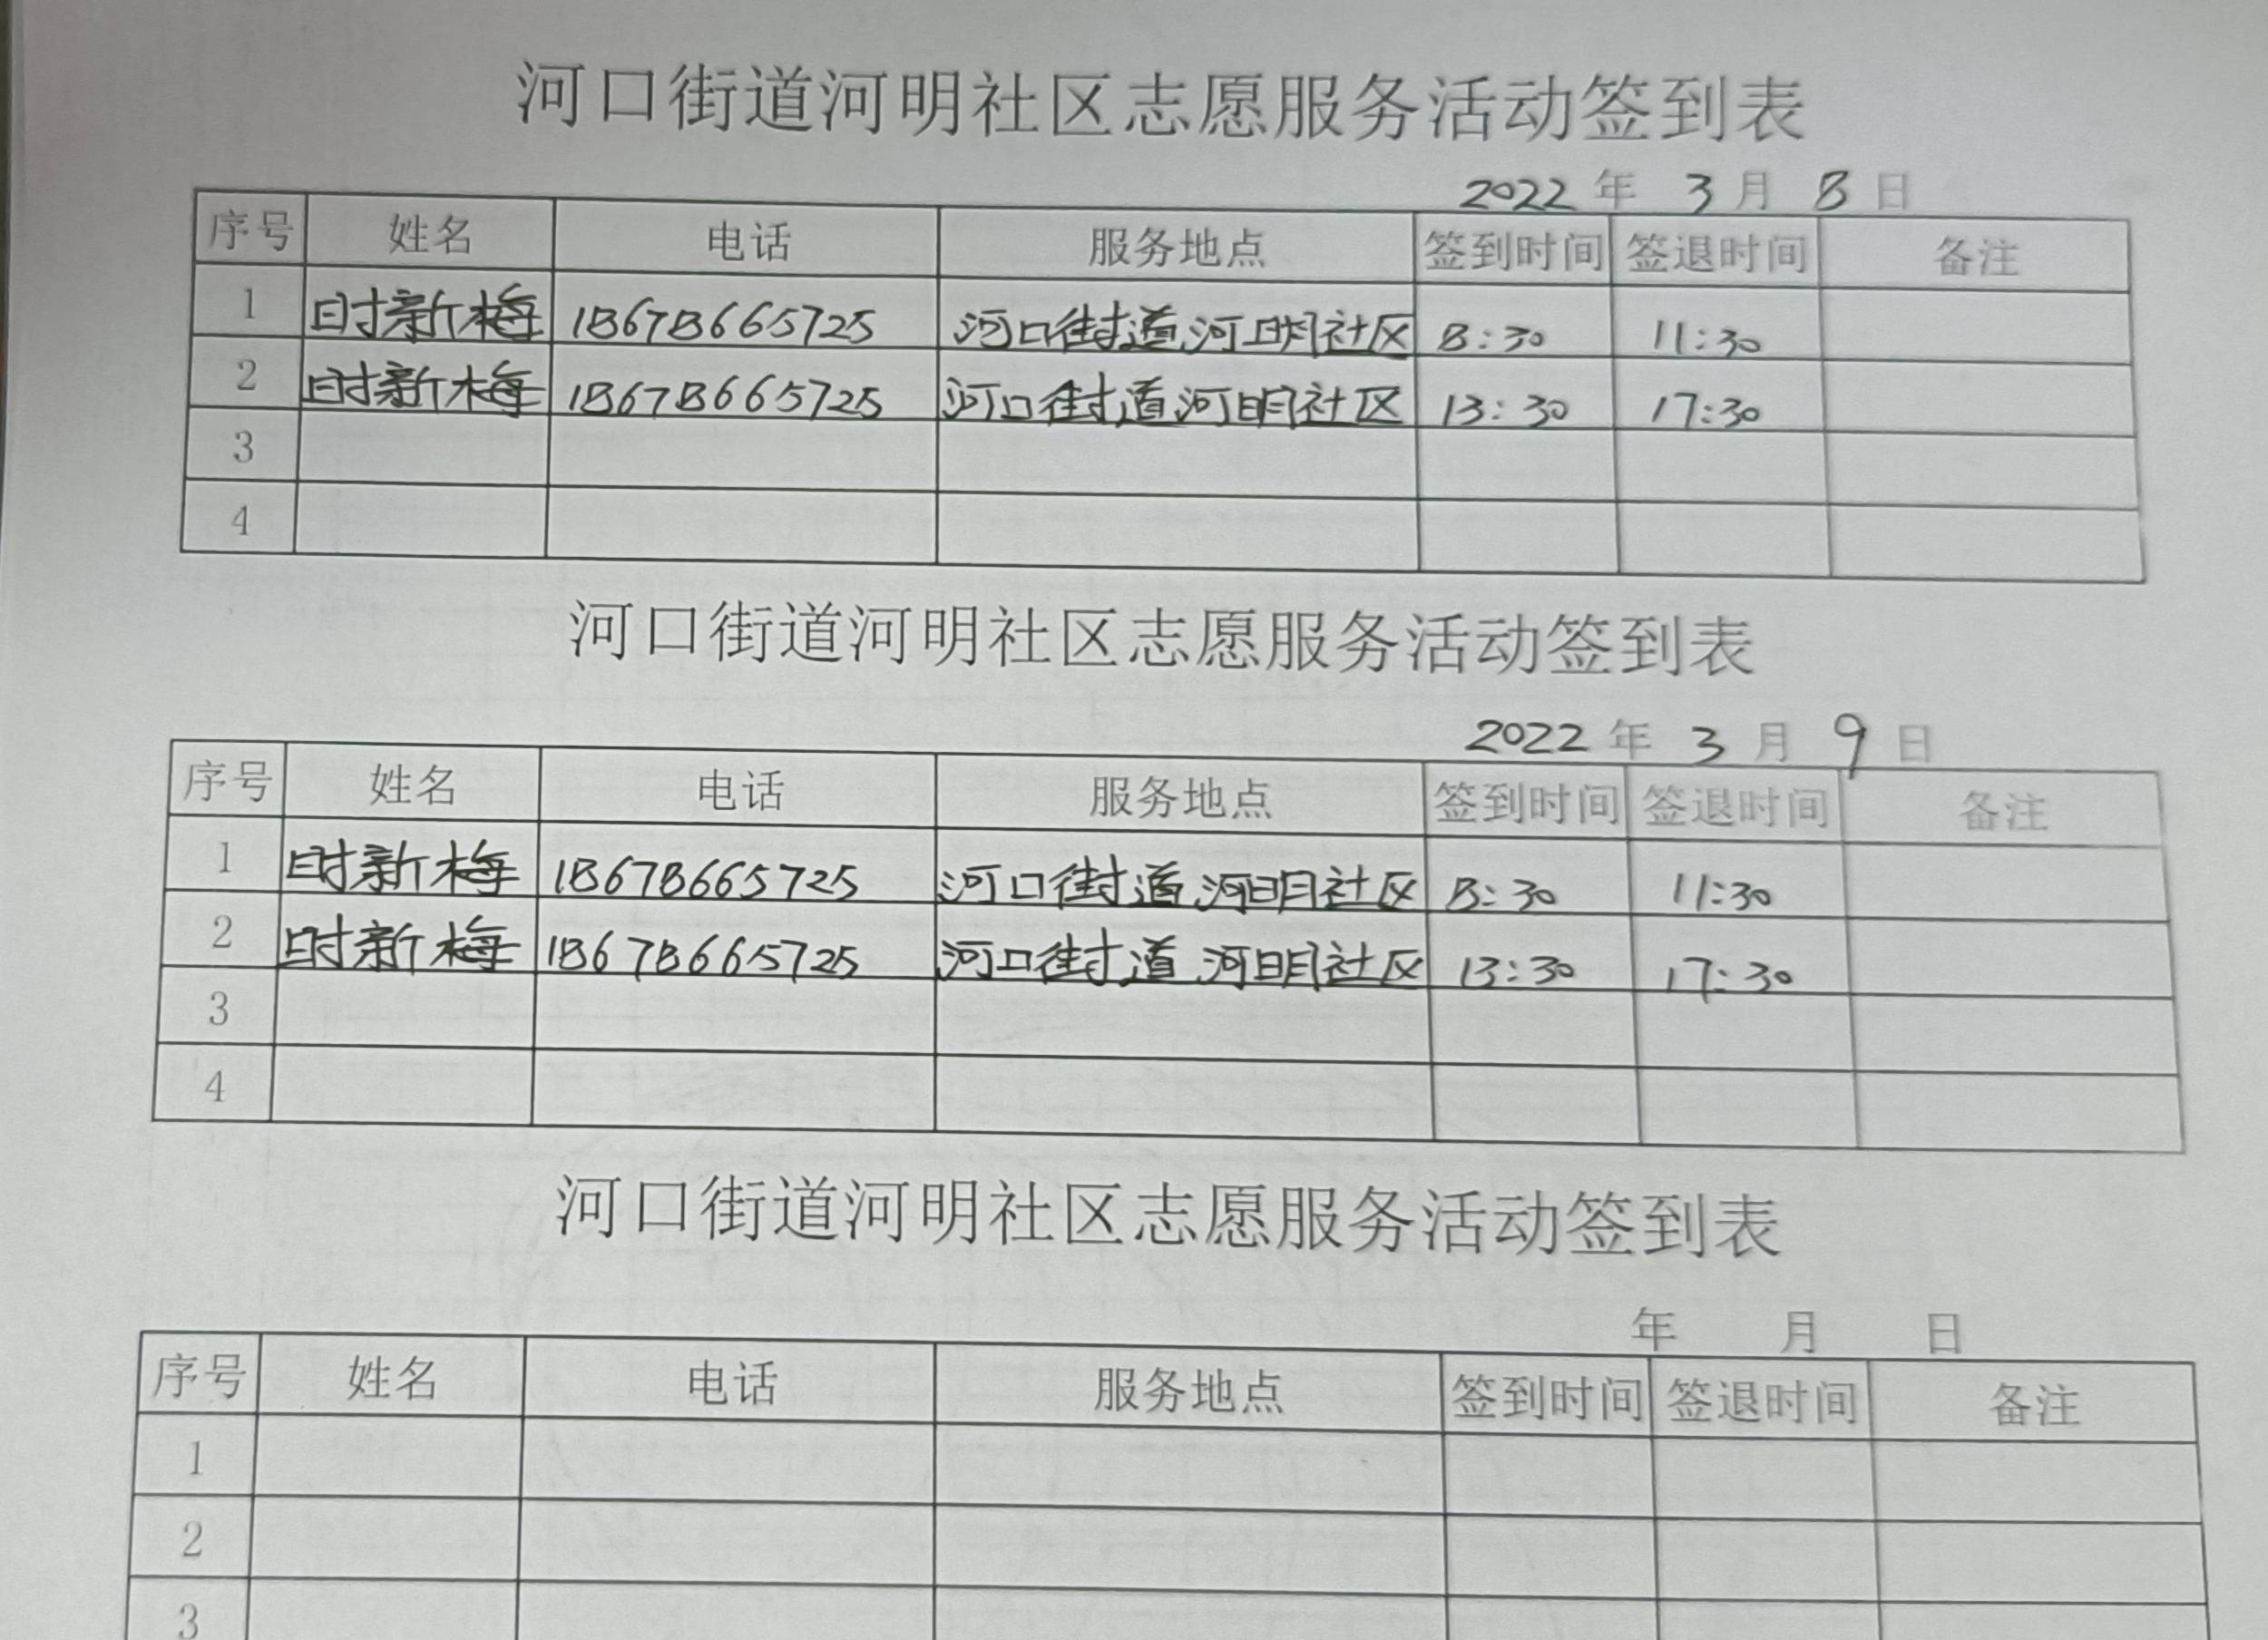 河口街道河明社区志愿服务活动签到表
2022 年 3 月 8 日
序号 姓名 电话 服务地点 签到时间 签退时间 备注
1 时新梅 18678665725 河口街道河明社区 8:30 11:30
2 时新梅 18678665725 河口街道河明社区 13:30 17:30
3
4
河口街道河明社区志愿服务活动签到表
2022 年 3 月 9 日
序号 姓名 电话 服务地点 签到时间 签退时间 备注
1 时新梅 18678665725 河口街道河明社区 8:30 11:30
2 时新梅 18678665725 河口街道河明社区 13:30 17:30
3
4
河口街道河明社区志愿服务活动签到表
年 月 日
序号 姓名 电话 服务地点 签到时间 签退时间 备注
1
2
3